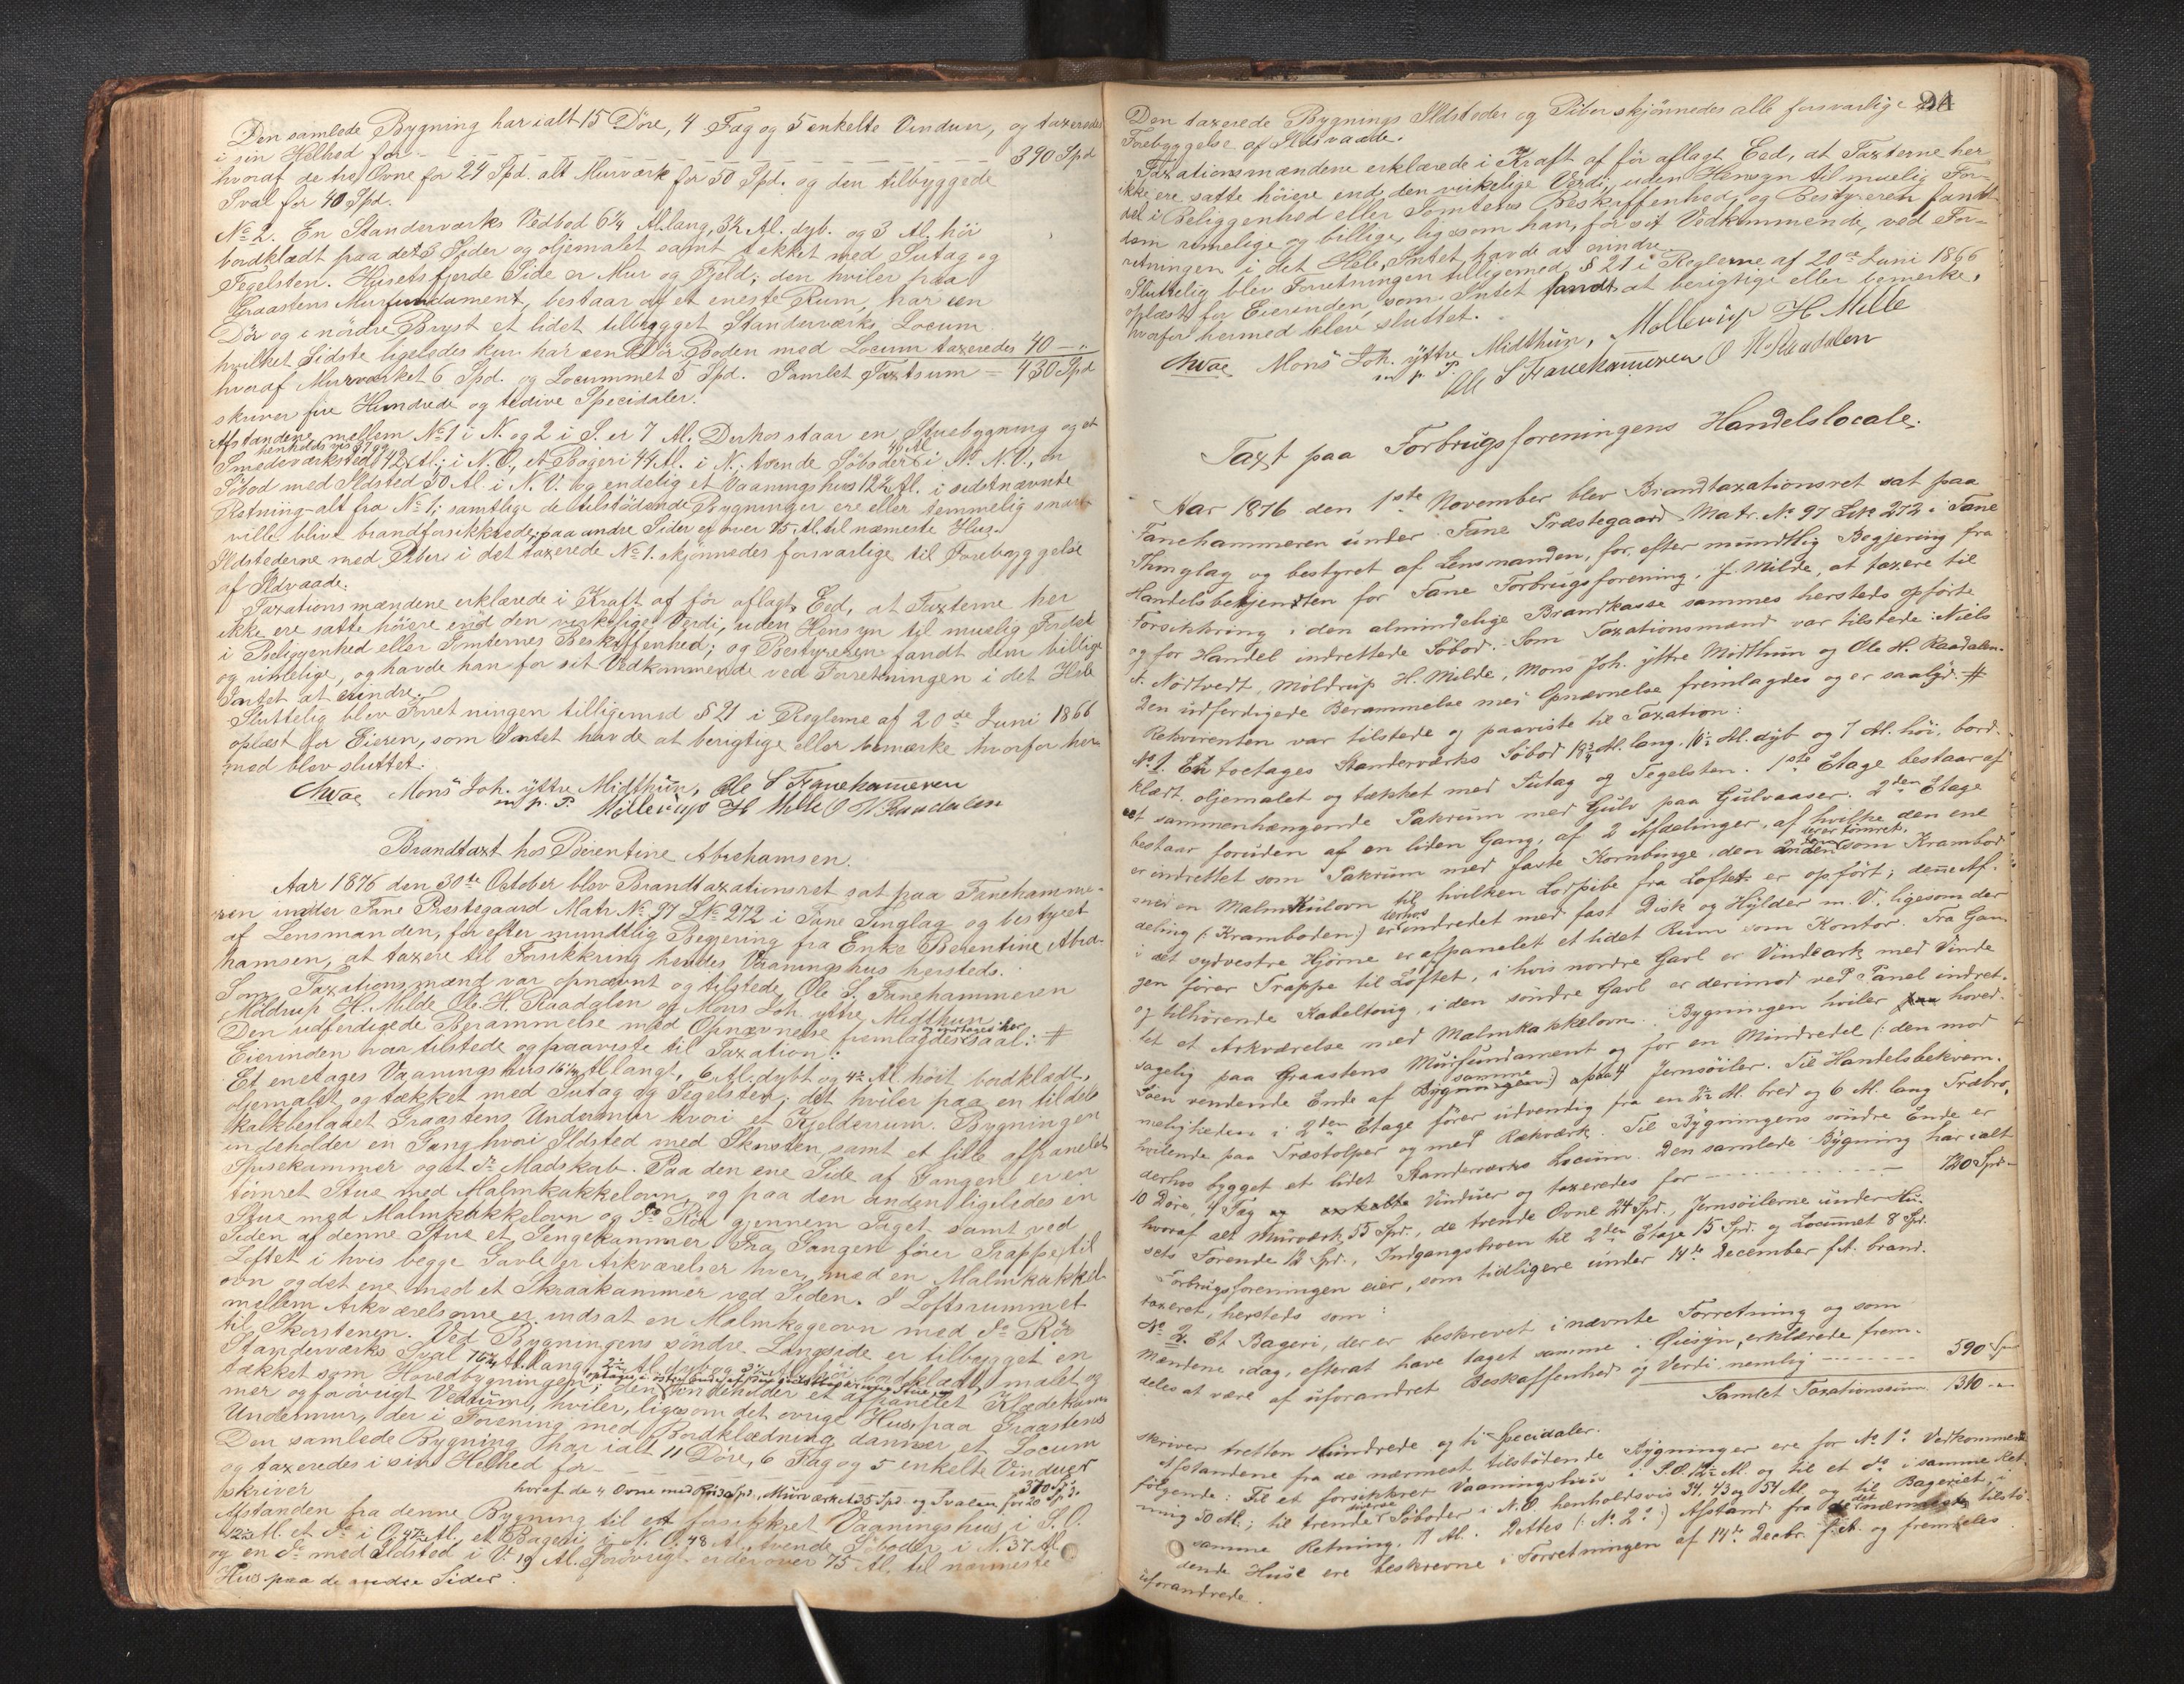 Den samlede Bygning har ialt 15 Döre, 4 Fag og 5 enkelte Vinduer, og taxeredes
i sin Helhed for 390 Spd
hvoraf de tre Ovne for 24 Spd. alt Murværk for 50 Spd. og den tilbyggede
Sval for 40 Spd.
No 2. En Standerværks Vedbod 6¼ Al. lang, 3½ Al. dyb. og 3 Al. höi
bordklædt paa det 3 Sider og oljemalet samt tækket med Sutag og
Tegelsten. Husets fjerde Side er Mur og Fjeld; den hviler paa
Graastens Murfundament, bestaar af et eneste Rum, har een
Dör og i nördre Bryst et lidet tilbygget Standerværks Locum
hvilket Sidste ligeledes kun har een Dör. Boden med Locum taxeredes 40 — "
hvoraf Murværket 6 Spd. og Locummet 5 Spd. Samlet Taxtsum = 430 Spd
skriver fire Hundrede og tredive Specidaler.
Afstandene mellem No 1 i N. og 2 i S. er 7 Al. Derhos staar en Stuebygning og et
Smedeværksted henholdsvis 37 og 42 Al. i N.O., et Bageri 44 Al. i N. tvende Söboder 40 Al i N. N.V., en
Söbod med Ildsted 50 Al. i N.V. og endelig et Vaaningshus 12½ Al. i sidstnævnte
Retning - alt fra No 1; samtlige de tilstödende Bygninger ere eller temmelig snart
ville blive brandforsikkrede; paa andre Sider er over 75 Al. til nærmeste Hus.
Ildstederne med Piber i det taxerede No 1. skjönnedes forsvarlige til Forebyggelse
af Ildvaade.
Taxationsmændene erklærede i Kraft af för aflagt Eed, at Taxterne her
ikke ere satte höiere end den virkelige Værdi, uden Hensyn til muelig Fordel
i Beliggenhed eller Tomternes Beskaffenhed; og Bestyreren fandt dem billige
og rimelige, og havde han for sit Vedkommende ved Forretningen i det Hele
Intet at erindre.
Sluttelig blev Forretningen tilligemed § 21 i Reglerne af 20de Juni 1866
oplæst for Eieren, som Intet havde at berigtige eller bemærke hvorfor her-
med blev sluttet.
Mons Joh. yttre Midthun, Ole S Fanehammeren
m. p. P. Möllerup H Milde O H. Raadalen
Brandtaxt hos Berentine Abrahamsen.
Aar 1876 den 30te October blev Brandtaxationsret sat paa Fanehamme-
ren under Fane Prestegaard Matr. No 97 LNo 272 i Fane Tinglag og bestyret
af Lensmanden, for efter mundtlig Begjering fra Enke Berentine Abra-
hamsen, at taxere til Forsikkring hendes Vaaningshus hersteds.
Som Taxationsmænd var opnævnt og tilstede, Ole S. Fanehammeren
Möldrup H. Milde, Ole H. Raadalen og Mons Joh. yttre Midthun
Den udferdigede Berammelse med Opnævnelse fremlagdes og indtages her saal: #
Eierinden var tilstede og paaviste til Taxation:
Et enetages Vaaningshus 16¼ Al. langt, 6 Al. dybt og 4½ Al. höit bordklædt,
oljemalet og tækket med Sutag og Tegelsten; det hviler paa en tildels
kalkbeslaaet Graastens Undermur hvori et Kjelderrum. Bygningen
indeholder en Gang hvori Ildsted med Skorsten, samt et lille afpanelet
Spisekammer og et Do Madskab. Paa den ene Side af Gangen er en
tömret Stue med Malmkakkelovn, og paa den anden ligeledes en
Stue med Malmkakkelovn og Do Rör gjennem Taget samt ved
Siden af denne Stue et Sengekammer. Fra Gangen förer Trappe til
Loftet i hvis begge Gavle er Arkværelser hver med en Malmkakkel-
ovn og det ene med et Skraakammer ved Siden. I Loftsrummet
mellem Arkværelserne er indsat en Malmkogeovn med Do Rör
til Skorstenen. Ved Bygningens söndre Langside er tilbygget en
Standerværks Sval 16¼ Al. lang, 2½ Al. dyb og 3½ Al. höi bordklædt, malet og
tækket som Hovedbygningen; den indeholder et afpanelet Klædekam-
mer og forövrigt Vedrum, hviler, ligesom det övrige Hus, paa Graastens
Undermur, der i Forening med Bordklædning danner et Locum
Den samlede Bygning har ialt 11 Döre, 6 Fag og 5 enkelte Vinduer
og taxeredes i sin Helhed for 370 Spd.
skriver hvoraf de 4 Ovne med Rör 30 Spd., Murværket 35 Spd. og Svalen for 20 Spd.
Afstanden fra denne Bygning til et forsikkret Vaaningshus i S.O.
12½ Al. et Do i O. 47½ Al., et Bageri i N.O. 48 Al., tvende Söboder i N. 37 Al.
og en Do med Ildsted i V. 19 Al. Forövrigt er der over 75 Al. til nærmeste
Hus paa de andre Sider.
94
Den taxerede Bygnings Ildsteder og Piber skjönnedes alle forsvarlige til
Forebyggelse af Ildsvaade.
Taxationsmændene erklærede i Kraft af för aflagt Eed, at Taxterne her
ikke ere satte höiere end den virkelige Værdi, uden Hensyn til muelig For-
del i Beliggenhed eller Tomtens Beskaffenhed, og Bestyreren fandt
dem rimelige og billige, ligesom han, for sit Vedkommende, ved For-
retningen i det Hele, Intet havde at erindre.
Sluttelig blev Forretningen tilligemed § 21 i Reglerne af 20de Juni 1866
oplæst for Eierinden, som Intet fandt at berigtige eller bemærke,
hvorfor hermed blev sluttet.
Mons Joh. yttre Midthun, Möllerup H Milde
m. p. P. Ole S Fanehammeren O H. Raadalen
Taxt paa Forbrugsforeningens Handelslocale.
Aar 1876 den 1ste November blev Brandtaxationsret sat paa
Fanehammeren under Fane Præstegaard Matr. No 97 LNo 272 i Fane
Thinglag og bestyret af Lensmanden, for, efter mundtlig Begjæring fra
Handelsbetjenten for Fane Forbrugsforening, J. Milde, at taxere til
Forsikkring i den almindelige Brandkasse sammes hersteds opförte
og for Handel indrettede Söbod. Som Taxationsmænd var tilstede: Niels
A. Nödtvedt, Möldrup H. Milde, Mons Joh. yttre Midthun og Ole H. Raadalen.
Den udferdigede Berammelse med Opnævnelse fremlagdes og er saalyd. #
Rekvirenten var tilstede og paaviste til Taxation:
No 1. En toetages Standerværks Söbod 18¾ Al. lang, 10½ Al. dyb og 7 Al. höi, bord-
klædt, oljemalet og tækket med Sutag og Tegelsten. 1ste Etage bestaar af
et sammenhængende Pakrum med Gulv paa Gulvaaser. 2den Etage
bestaar foruden af en liden Gang, af 2 Afdelinger, af hvilke den ene
er indrettet som Pakrum med faste Kornbinge, den anden, der er tömret, som Krambod
med en Malmkulovn til hvilken Lodpibe fra Loftet er opfört; denne Af-
deling (: Kramboden :) er derhos indredet med fast Disk og Hylder m. V. ligesom der
i det sydvestre Hjörne er afpanelet et lidet Rum som Kontor. Fra Gan-
gen förer Trappe til Loftet, i hvis nordre Gavl er Vindeark med Vinde
og tilhörende Kabeltoug, i den söndre Gavl er derimod ved Panel indret-
tet et Arkværelse med Malmkakkelovn. Bygningen hviler hoved-
sagelig paa Graastens Murfundament og for en Mindredel (: den mod
Söen vendende Ende af samme :) paa 4 Jernsöiler. Til Handelsbekvem-
meligheden i 2den Etage förer udvendig fra en 2½ Al. bred og 6 Al. lang Træbro,
hvilende paa Træstolper og med Rækværk. Til Bygningens söndre Ende er
derhos bygget et lidet Standerværks Locum. Den samlede Bygning har ialt
10 Döre, 4 Fag Vinduer og taxeredes for 720 Spd.
hvoraf alt Murværk 55 Spd., de trende Ovne 24 Spd., Jernsöilerne under Hu-
sets Forende 12 Spd., Indgangsbroen til 2den Etage 15 Spd. og Locummet 8 Spd.
Forbrugsforeningen eier, som tidligere under 14de December f.A. brand-
taxeret, hersteds som:
No 2. Et Bageri, der er beskrevet i nævnte Forretning og som
Mændene idag, efterat have taget samme i Öiesyn, erklærede frem-
deles at være af uforandret Beskaffenhed og Verdi nemlig 590 Spd
Samlet Taxationssum 1310 "
skriver tretten Hundrede og ti Specidaler.
Afstandene fra de nærmest tilstödende Bygninger ere for No 1s Vedkommende
fölgende: Til et forsikkret Vaaningshus i S.O. 12½ Al. og til et Do i samme Ret-
ning 50 Al.; til trende diverse Söboder i N.O henholdsvis 34, 43 og 54 Al og til Bageriet, i
samme Retning, 71 Al. Dettes (: No 2s :) Afstand fra de nærmeste tilstö-
dende Huse ere beskrevne i Forretningen af 14de Decbr. f.A. og fremdeles
uforandrede.